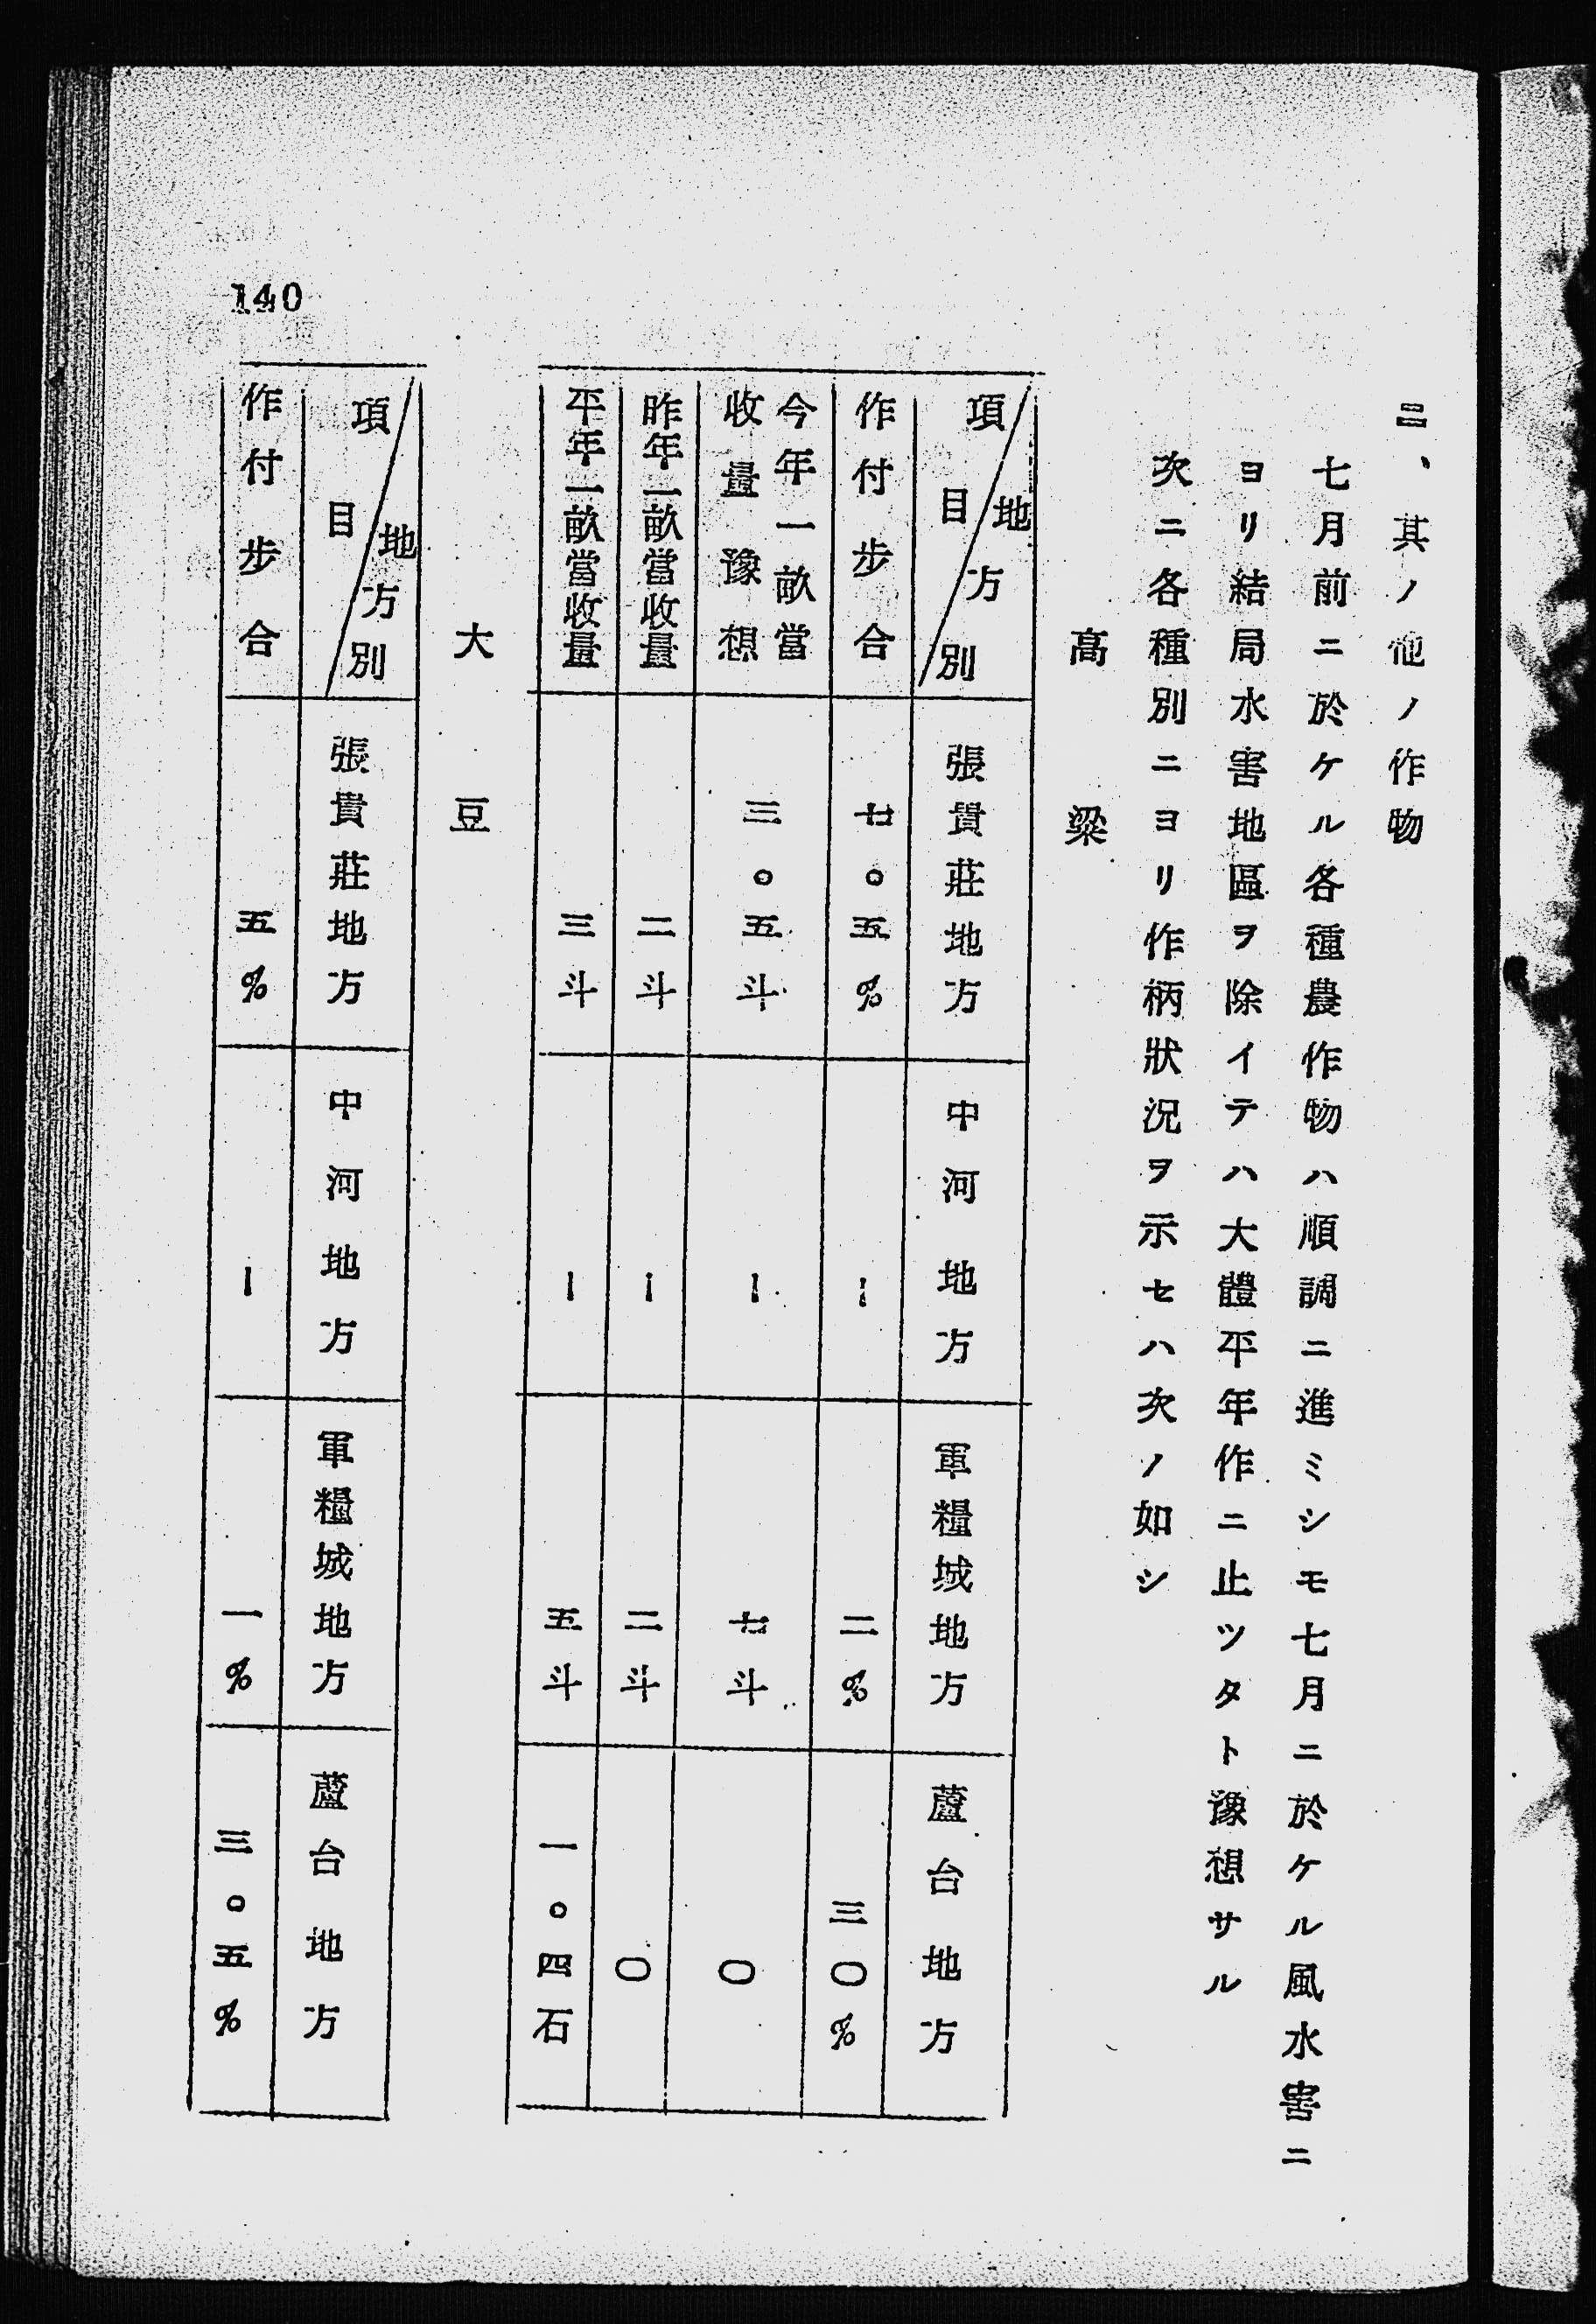 三、其ノ他ノ作物
七月前ニ於ケル各種農作物ハ順調ニ進ミシモ七月ニ於ケル風水害ニ
ヨリ結局水害地區ヲ除イテハ大體平年作ニ止ツタト豫想サル
次ニ各種別ニヨリ作柄狀況ヲ示セハ次ノ如シ
高粱
項目 地方別 張貴莊地方 中河地方 軍糧城地方 蘆台地方
作付步合 七〇五% ー 二% 三〇%
今年一畝當收量豫想 三〇五斗 ー 七斗 〇
昨年一畝當收量 二斗 ー 二斗 〇
平年一畝當收量 三斗 ー 五斗 一〇四石
大豆
項目 地方別 張貴莊地方 中河地方 軍糧城地方 蘆台地方
作付步合 五% ー 一% 三〇五%
140